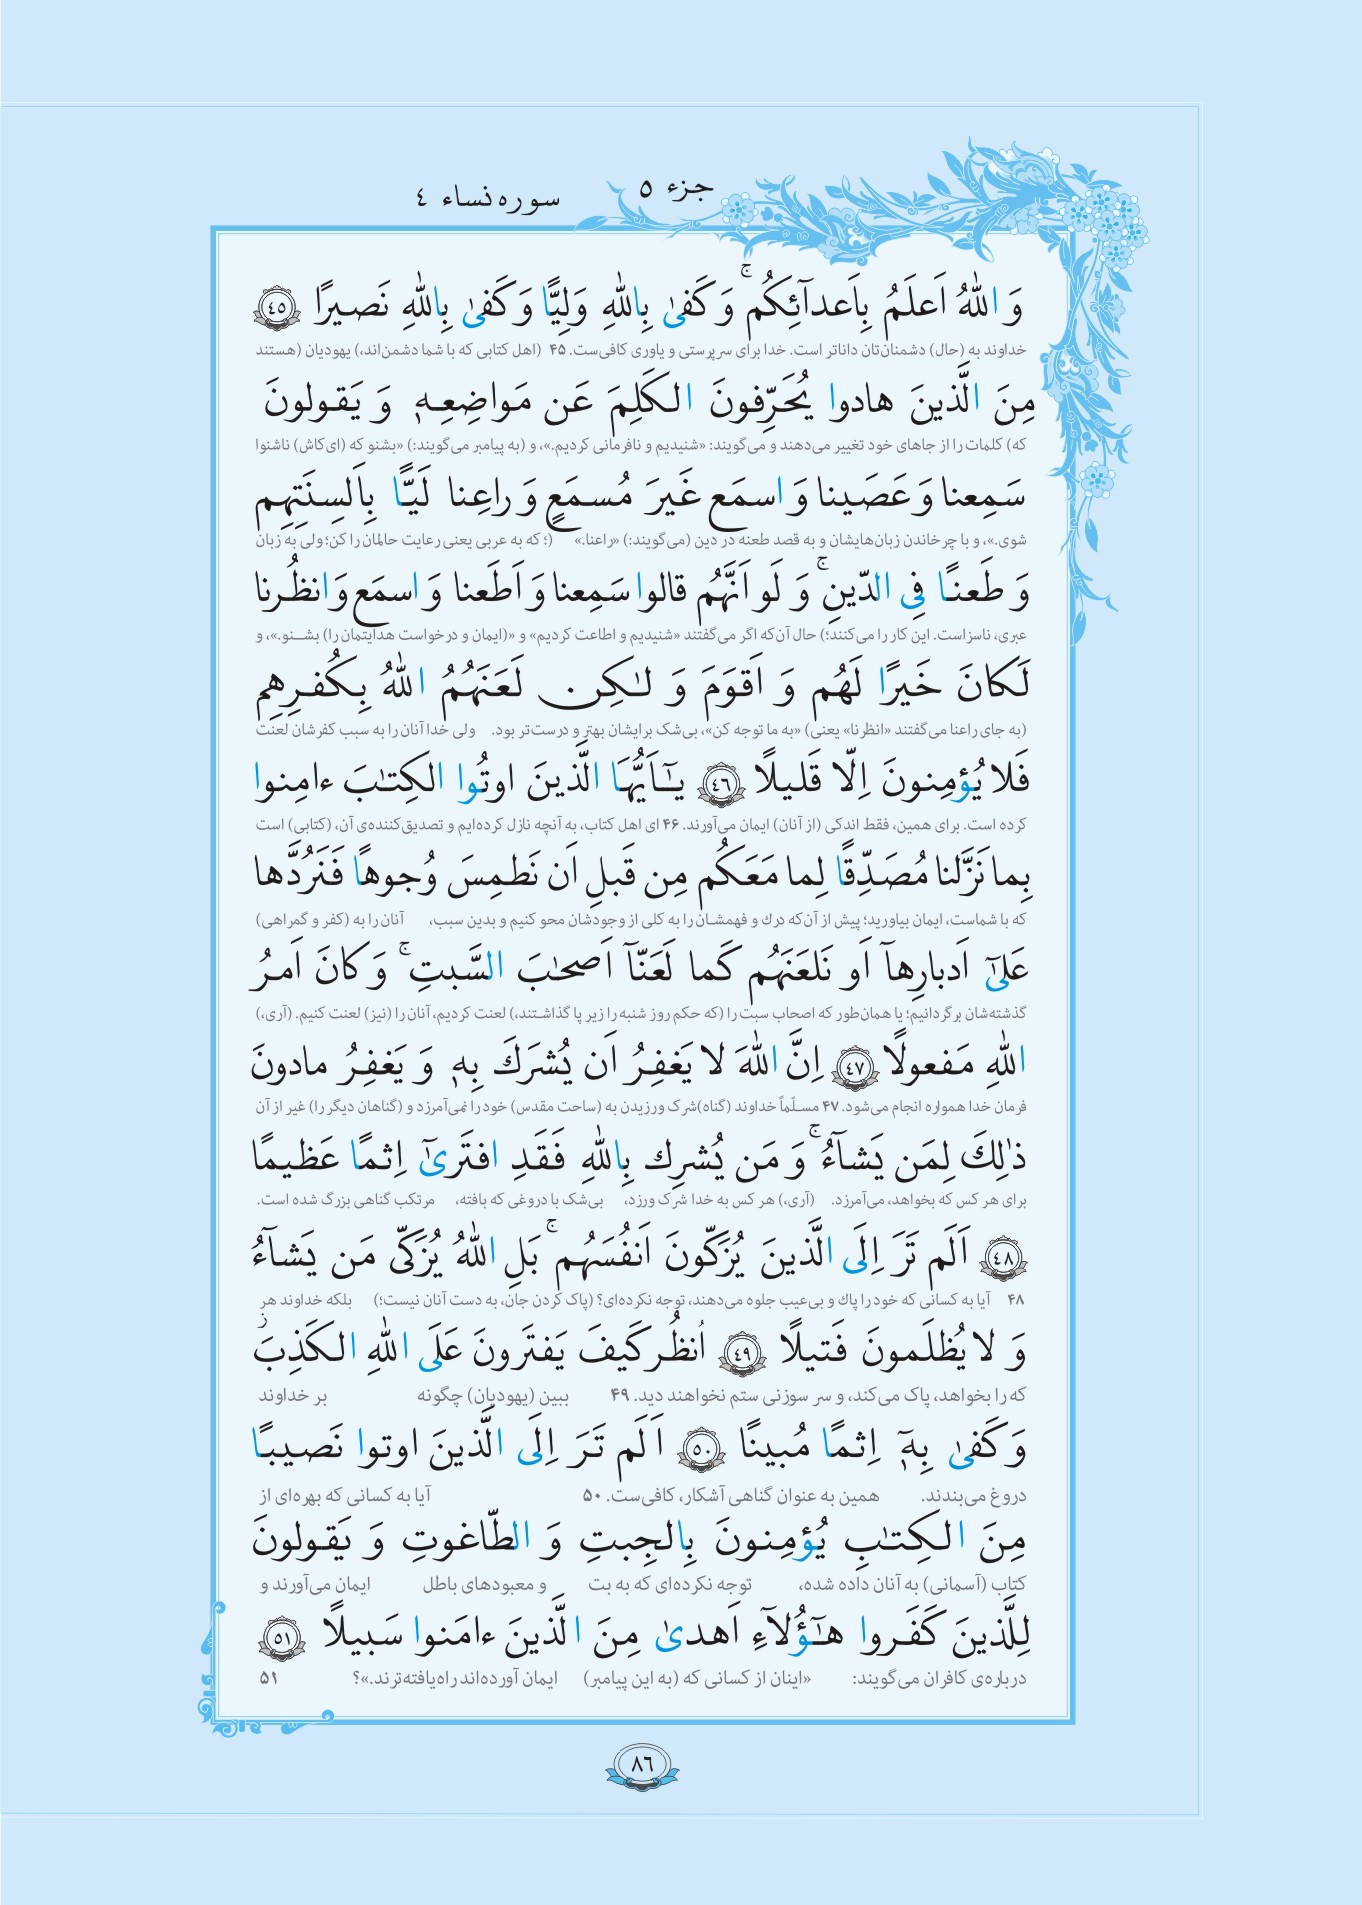 جزء ٥
سوره نساء ٤
وَ اللهُ اَعلَمُ بِاَعدآئِكُم ۚ وَ كَفىٰ بِاللهِ وَلِيًّا وَ كَفىٰ بِاللهِ نَصيرًا ٤٥
خداوند به (حال) دشمنان‌تان داناتر است. خدا برای سرپرستی و یاوری کافی‌ست. ۴۵ (اهل کتابی که با شما دشمن‌اند،) یهودیان (هستند
مِنَ الَّذينَ هادوا يُحَرِّفونَ الكَلِمَ عَن مَواضِعِهٖ وَ يَقولونَ
که) کلمات را از جاهای خود تغییر می‌دهند و می‌گویند: «شنیدیم و نافرمانی کردیم.»، و (به پیامبر می‌گویند:) «بشنو که (ای‌کاش) ناشنوا
سَمِعنا وَ عَصَينا وَ اسمَع غَيرَ مُسمَعٍ وَ راعِنا لَيًّا بِاَلسِنَتِهِم
شوی.»، و با چرخاندن زبان‌هایشان و به قصد طعنه در دین (می‌گویند:) «راعنا.» (؛ که به عربی یعنی رعایت حالمان را کن؛ ولی به زبان
وَ طَعنًا فِى الدّينِ ۚ وَ لَو اَنَّهُم قالوا سَمِعنا وَ اَطَعنا وَ اسمَع وَ انظُرنا
عبری، ناسزاست. این کار را می‌کنند؛) حال آن‌که اگر می‌گفتند «شنیدیم و اطاعت کردیم» و «(ایمان و درخواست هدایتمان را) بشنو.»، و
لَكانَ خَيرًا لَهُم وَ اَقوَمَ وَ لـٰكِن لَعَنَهُمُ اللهُ بِكُفرِهِم
(به جای راعنا می‌گفتند «انظرنا» یعنی) «به ما توجه کن»، بی‌شک برایشان بهتر و درست‌تر بود. ولی خدا آنان را به سبب کفرشان لعنت
فَلا يُؤمِنونَ اِلّا قَليلًا ٤٦ يـٰٓاَيُّهَا الَّذينَ اوتُوا الكِتـٰبَ ءامِنوا
کرده است. برای همین، فقط اندکی (از آنان) ایمان می‌آورند. ۴۶ ای اهل کتاب، به آنچه نازل کرده‌ایم و تصدیق‌کننده‌ی آن، (کتابی) است
بِما نَزَّلنا مُصَدِّقًا لِما مَعَكُم مِن قَبلِ اَن نَطمِسَ وُجوهًا فَنَرُدَّها
که با شماست، ایمان بیاورید؛ پیش از آن‌که درك و فهمشان را به کلی از وجودشان محو کنیم و بدین سبب، آنان را به (کفر و گمراهی)
عَلىٰٓ اَدبارِهآ اَو نَلعَنَهُم كَما لَعَنّآ اَصحـٰبَ السَّبتِ ۚ وَ كانَ اَمرُ
گذشته‌شان برگردانیم؛ یا همان‌طور که اصحاب سبت را (که حکم روز شنبه را زیر پا گذاشتند،) لعنت کردیم، آنان را (نیز) لعنت کنیم. (آری،)
اللهِ مَفعولًا ٤٧ اِنَّ اللهَ لا يَغفِرُ اَن يُشرَكَ بِهٖ وَ يَغفِرُ مادونَ
فرمان خدا همواره انجام می‌شود. ۴۷ مسلّماً خداوند (گناه)شرک ورزیدن به (ساحت مقدس) خود را نمی‌آمرزد و (گناهان دیگر را) غیر از آن
ذٰلِكَ لِمَن يَشآءُ ۚ وَ مَن يُشرِك بِاللهِ فَقَدِ افتَرىٰٓ اِثمًا عَظيمًا
برای هر کس که بخواهد، می‌آمرزد. (آری،) هر کس به خدا شرک ورزد، بی‌شک با دروغی که بافته، مرتکب گناهی بزرگ شده است.
٤٨ اَلَم تَرَ اِلَى الَّذينَ يُزَكّونَ اَنفُسَهُم ۚ بَلِ اللهُ يُزَكّى مَن يَشآءُ
۴۸ آیا به کسانی که خود را پاك و بی‌عیب جلوه می‌دهند، توجه نکرده‌ای؟ (پاک کردن جان، به دست آنان نیست؛) بلکه خداوند هر
وَ لا يُظلَمونَ فَتيلًا ٤٩ اُنظُر كَيفَ يَفتَرونَ عَلَى اللهِ الكَذِبَ ز
که را بخواهد، پاک می‌کند، و سر سوزنی ستم نخواهند دید. ۴۹ ببین (یهودیان) چگونه بر خداوند
وَ كَفىٰ بِهٖٓ اِثمًا مُبينًا ٥٠ اَلَم تَرَ اِلَى الَّذينَ اوتوا نَصيبًا
دروغ می‌بندند. همین به عنوان گناهی آشکار، کافی‌ست. ۵۰ آیا به کسانی که بهره‌ای از
مِنَ الكِتـٰبِ يُؤمِنونَ بِالجِبتِ وَ الطّاغوتِ وَ يَقولونَ
کتاب (آسمانی) به آنان داده شده، توجه نکرده‌ای که به بت و معبودهای باطل ایمان می‌آورند و
لِلَّذينَ كَفَروا هـٰٓؤُلآءِ اَهدىٰ مِنَ الَّذينَ ءامَنوا سَبيلًا ٥١
درباره‌ی کافران می‌گویند: «اینان از کسانی که (به این پیامبر) ایمان آورده‌اند راه‌یافته‌ترند.»؟ ۵۱
٨٦